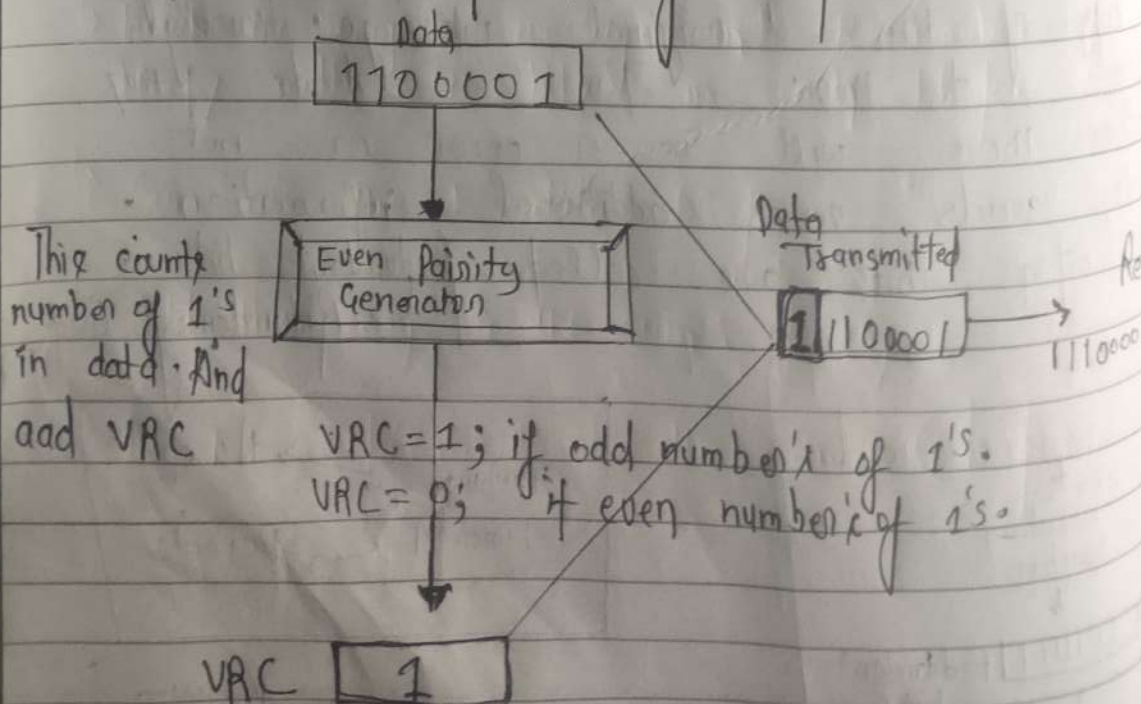 Data
1100001
This counts
number of 1's
in data. And
aad VRC
Even Pairity
Generator
Data
Transmitted
1 1100001
1110000
VRC = 1; if odd number's of 1's.
VRC = 0; if even number's of 1's.
VRC 1